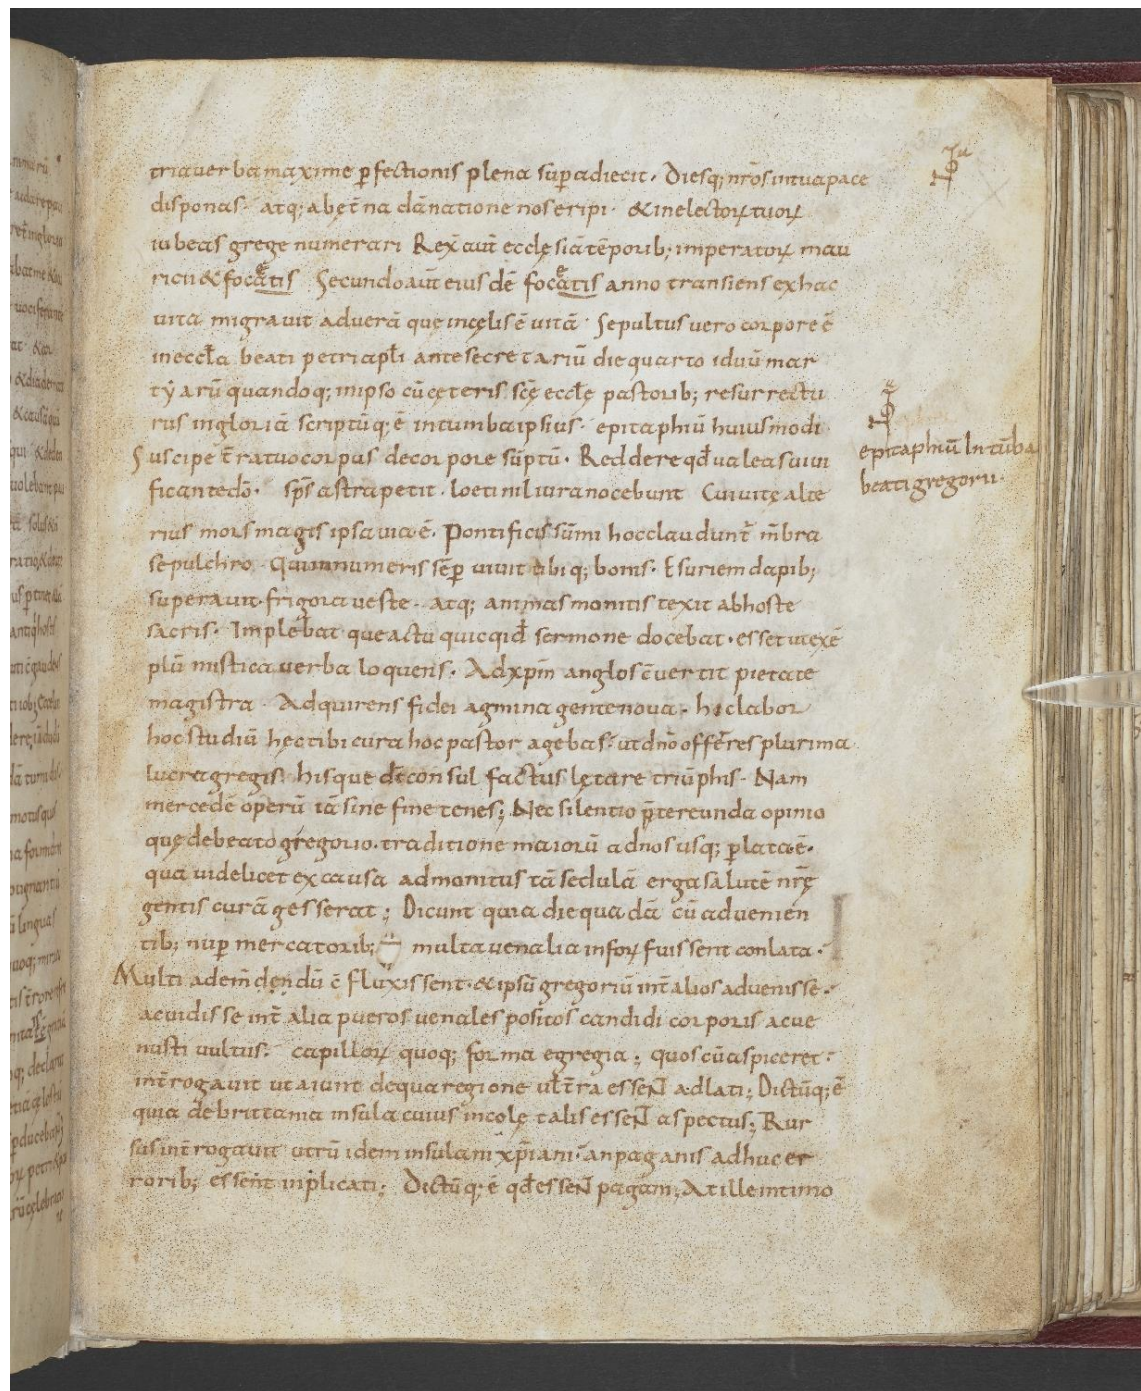 tria uerba maxime ꝑfectionis plena suꝑadiecit. Diesq; nr̄os in tua pace
disponas. atq; ab ęt̄na dānatione nos eripi. & in electoꝝ tuoꝝ
iubeas grege numerari Rex̄ aut̄ ecclęsiā tēporib; imperatoꝝ mau
ricii & focatis Secundo aūt eius dē focatis anno transiens ex hac
uita migrauit ad uerā que in cęlis ē uitā. Sepultus uero corpore ē
in eccl̄a beati petri apl̄i ante secretariū die quarto iduū mar
tyarū quandoq; in ipso cū cęteris scę̄ eccl̄ę pastorib; resurrectu
rus in gloriā scriptūq; ē in tumba ipsius. epitaphiū huiusmodi
Suscipe t̄ra tuo corpus de corpore sūptū. Reddere qd̄ ualeas uiui
ficante dō. sp̄s astra petit. loeti nil iura nocebunt Cui uitę alte
rius mors magis ipsa uia ē. Pontificis sūmi hoc claudunt̄ m̄bra
sepulchro. Qui innumeris sēꝑ uiuit ubiq; bonis. Esuriem dapib;
superauit. frigora ueste. atq; animas monitis texit ab hoste
sacris. Implebat que actu quicqid̄ sermone docebat. esset ut exē
plū mistica uerba loquens. Ad xp̄m anglos c̄uertit pietate
magistra. Adquirens fidei agmina gente noua. hic labor
hoc studiū hęc tibi cura hoc pastor agebas. ut dn̄o offerres plurima
lucra gregis. hisque dī consul factus lętare triūphis. Nam
mercedē operū iā sine fine tenes; Nec silentio p̄tereunda opinio
quę de beato gregorio. traditione maiorū ad nos usq; ꝑlata ē.
qua uidelicet ex causa admonitus tā sedulā erga salutē nr̄ę
gentis curā gesserat; Dicunt quia die quadā cū aduenien
tib; nuꝑ mercatorib; multa uenalia in foꝝ fuissent conlata.
Multi ad em̄dendū c̄fluxissent. & ipsū gregoriū int̄ alios aduenisse.
ac uidisse int̄ alia pueros uenales positos candidi corporis ac ue
nusti uultus. capilloꝝ quoq; forma egregia; quos cū aspiceret.
int̄rogauit ut aiunt de qua regione ul̄ t̄ra essent adlati; Dictūq; ē
quia de brittania insula cuius incolę talis essent aspectus; Rur
sus int̄rogauit utrū idem insulani xp̄iani. an paganis adhuc er
rorib; essent inplicati; Dictūq; ē qd̄ essent pagani; At ille intimo
epitaphiū In tūba
beati gregorii.